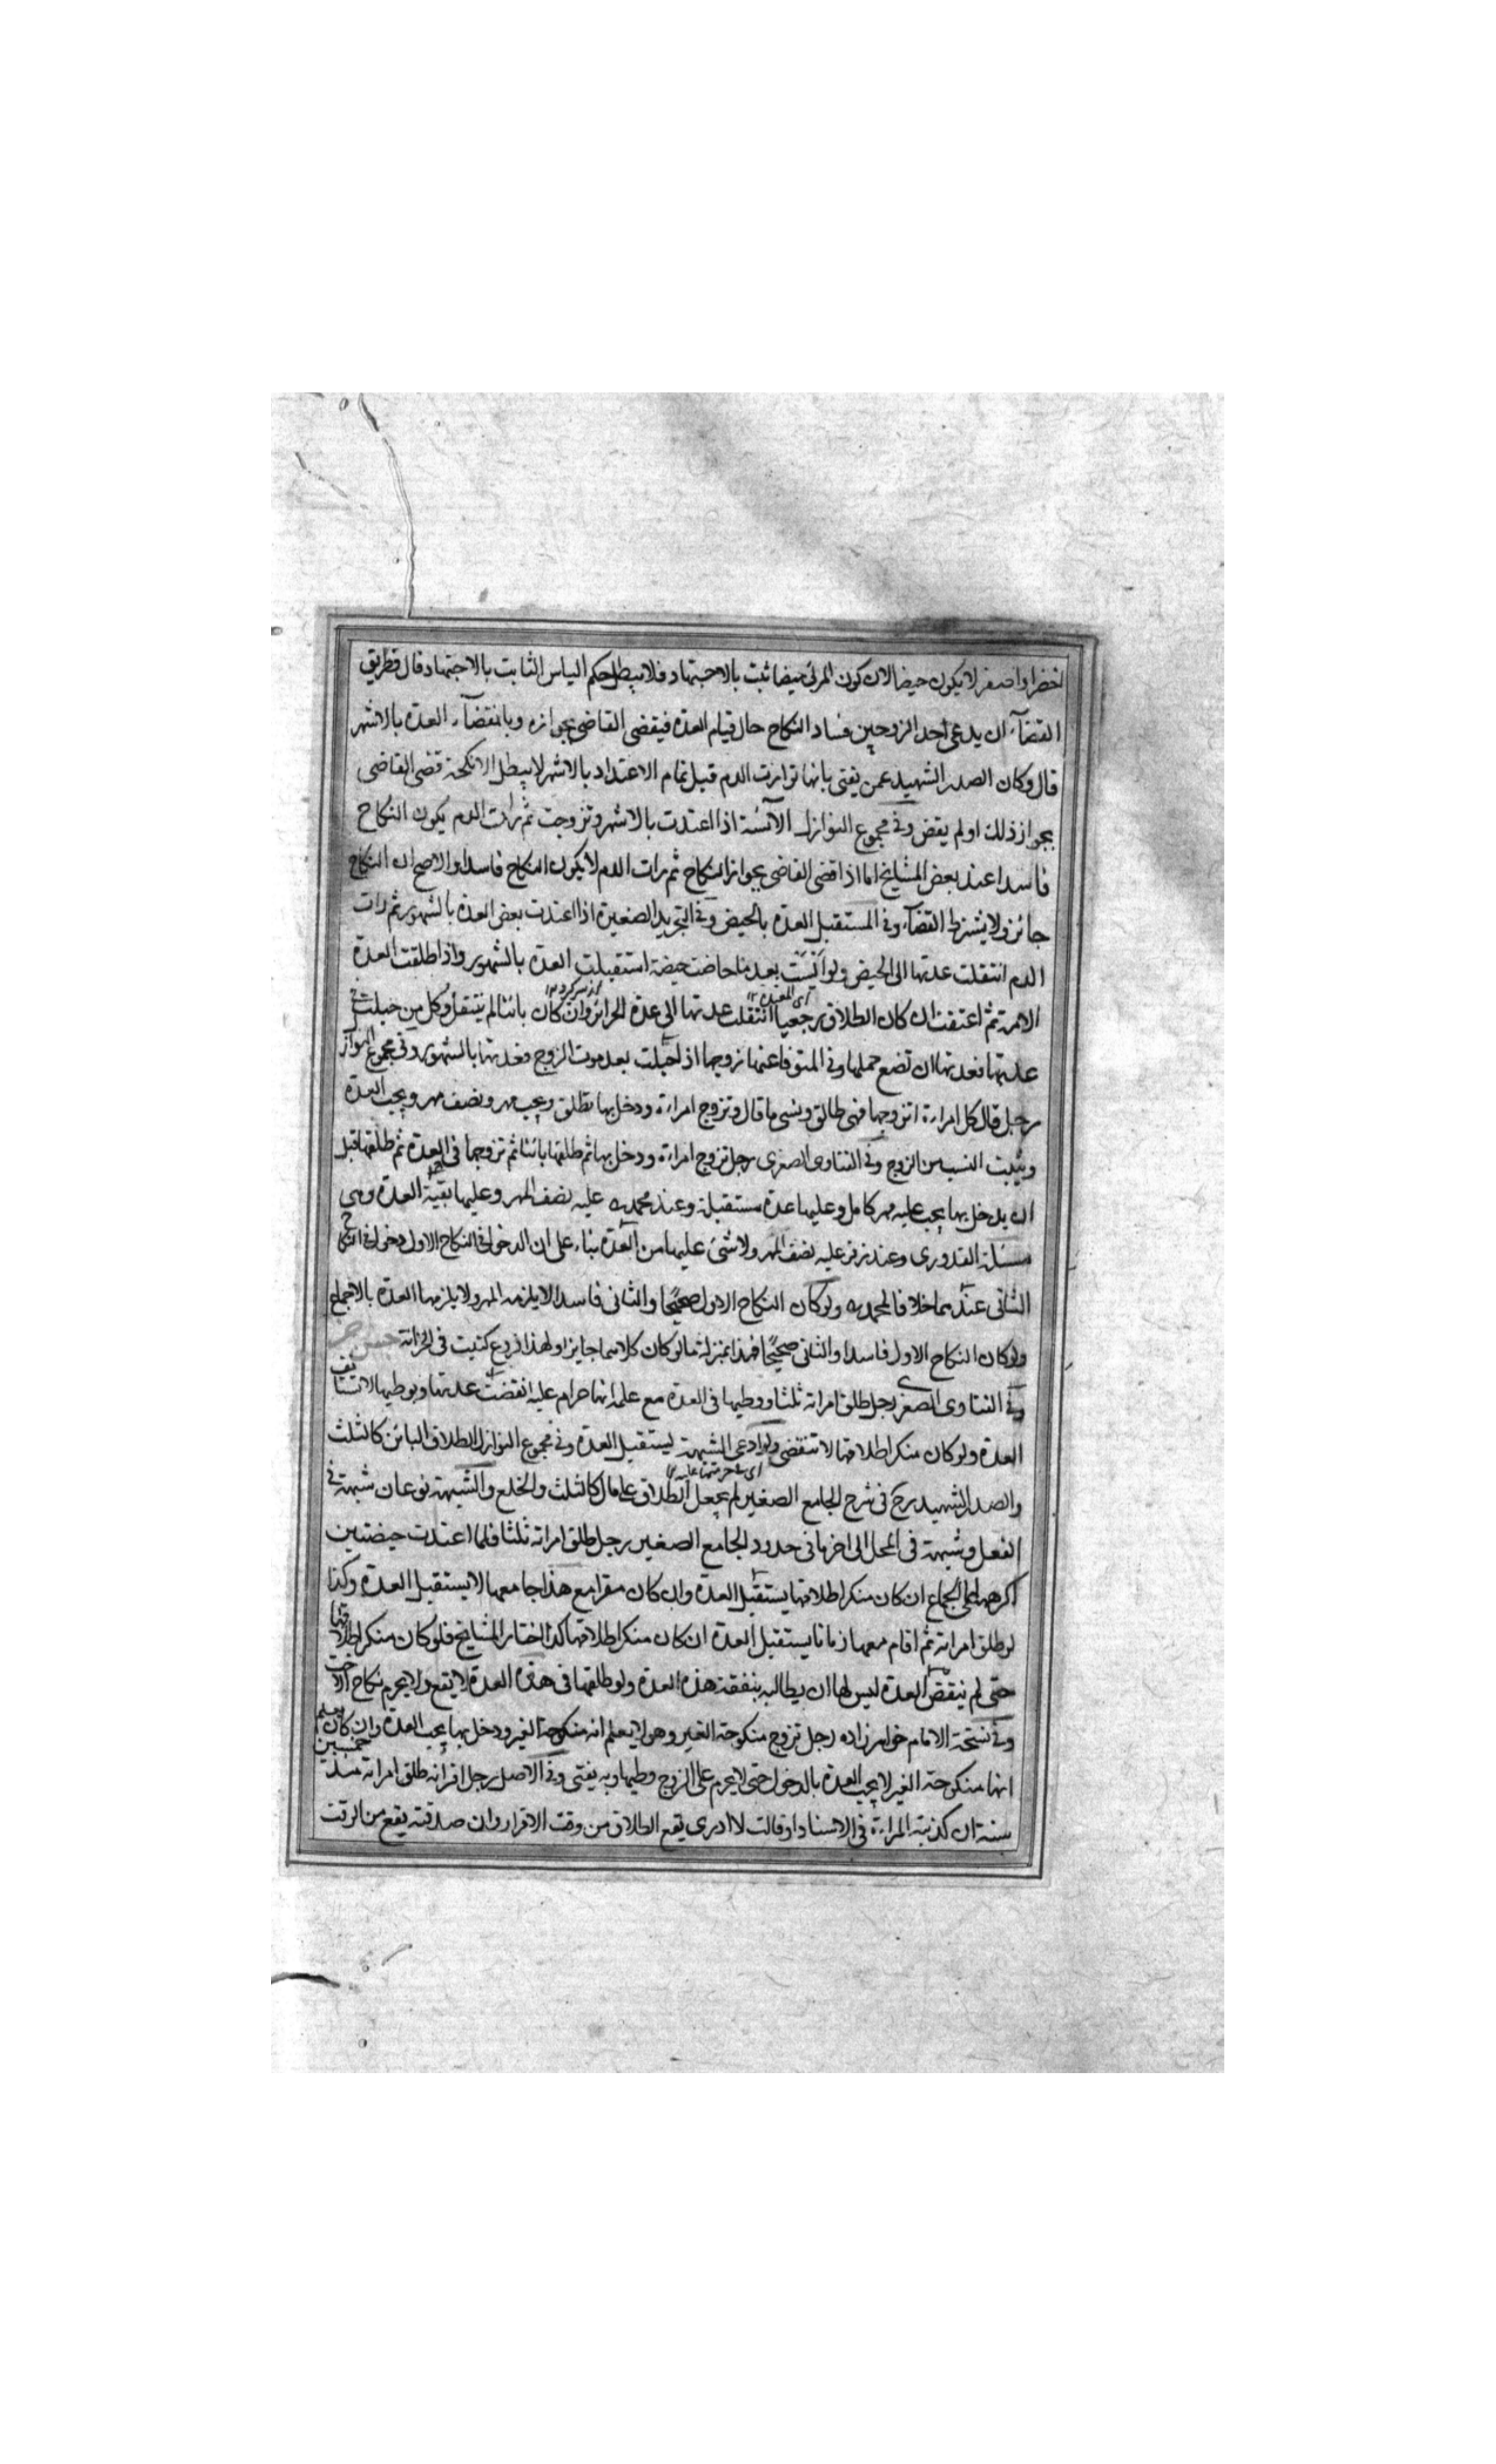 اخضر او اصفر لا يكون حيضا لان كون المرئى حيضا ثبت بالاجتهاد فلا يبطل حكم الياس الثابت بالاجتهاد قال و طريق
القضآء ان يدعى احد الزوجين فساد النكاح حال قيام العدة فيقضى القاضى بجوازه وبانقضآء العدة بالاشهر
قال وكان الصدر الشهيد عمن يفتى بانها لو ارت الدم قبل تمام الاعتداد بالاشهر لا يبطل الانكحة قضى القاضى
بجواز ذلك او لم يقض وفى مجموع النوازل الآئسة اذا اعتدت بالاشهر وتزوجت ثم رات الدم يكون النكاح
فاسدا عند بعض المشايخ اما اذا قضى القاضى بجواز النكاح ثم رات الدم لا يكون النكاح فاسدا والاصح ان النكاح
جائز ولا يشترط القضآء وفى المستقبل العدة بالحيض وفى التجريد الصغيرة اذا اعتدت بعض العدة بالشهور ثم رات
الدم انتقلت عدتها الى الحيض ولو آئست بعد ما حاضت حيضة استقبلت العدة بالشهور واذا طلقت العدة
الامة ثم اعتقت ان كان الطلاق رجعيا انتقلت عدتها الى عدة الحرائر وان كان بائنا لم ينتقل وكل من حبلت فى
عدتها فعدتها ان تضع حملها وفى المتوفا عنها زوجها اذا حبلت بعد موت الزوج فعدتها بالشهور وفى مجموع النوازل
رجل قال كل امراءة اتزوجها فهى طالق ونسى ما قال وتزوج امراءة ودخل بها تطلق ويجب مهر ونصف مهر ويجب العدة
ويثبت النسب من الزوج وفى الفتاوى الصغرى رجل تزوج امراءة ودخل بها ثم طلقها بائنا ثم تزوجها فى العدة ثم طلقها قبل
ان يدخل بها يجب عليه مهر كامل وعليها عدة مستقبلة وعند محمد ره عليه نصف المهر وعليها بقية العدة وهى
مسئلة القدورى وعند زفر عليه نصف المهر ولا شئ عليها من العدة بناء على ان الدخول فى النكاح الاول دخول فى النكاح
الثانى عندهما خلافا لمحمد ره ولو كان النكاح الاول صحيحًا والثانى فاسدا لا يلزمه المهر ولا يلزمها العدة بالاجماع
ولو كان النكاح الاول فاسدا والثانى صحيحًا فهذا بمنزلة ما لو كان كلاهما جايزا ولهذا فروع كتبت فى الخزانة
وفى الفتاوى الصغرى رجل طلق امراته ثلثا ووطيها فى العدة مع علمه انها حرام عليه انقضت عدتها وبوطيها لا تستانف
العدة ولو كان منكرا طلاقها لا تنقضى ولو ادعى الشبهة يستقبل العدة وفى مجموع النوازل الطلاق البائن كالثلث
والصدر الشهيد رح فى شرح الجامع الصغير لم يجعل الطلاق على مال كالثلث والخلع والشبهة نوعان شبهة فى
الفعل وشبهة فى المحل الى اخرها فى حدود الجامع الصغير رجل طلق امراته ثلثا فلما اعتدت حيضتين
اكرهها على الجماع ان كان منكرا طلاقها يستقبل العدة وان كان مقرا مع هذا جامعها لا يستقبل العدة وكذا
لو طلق امراته ثم اقام معها زمانا يستقبل العدة ان كان منكرا طلاقها كذا اختار المشايخ فلو كان منكرا طلاقها
حتى لم ينقض العدة ليس لها ان يطالبه بنفقة هذه العدة ولو طلقها فى هذه العدة لا يقع ولا يحرم نكاح الاخت
وفى نسخة الامام خواهر زاده رجل تزوج منكوحة الغير وهو لا يعلم انه منكوحة الغير ودخل بها يجب العدة وان كان يعلم
انها منكوحة الغير لا يجب العدة بالدخول حتى لا يحرم على الزوج وطيها وبه يفتى وفى الاصل رجل اقر انه طلق امراته منذ خمسين
سنة ان كذبته المراءة فى الاسناد او قالت لا ادرى يقع الطلاق من وقت الاقرار وان صدقته يقع من الوقت